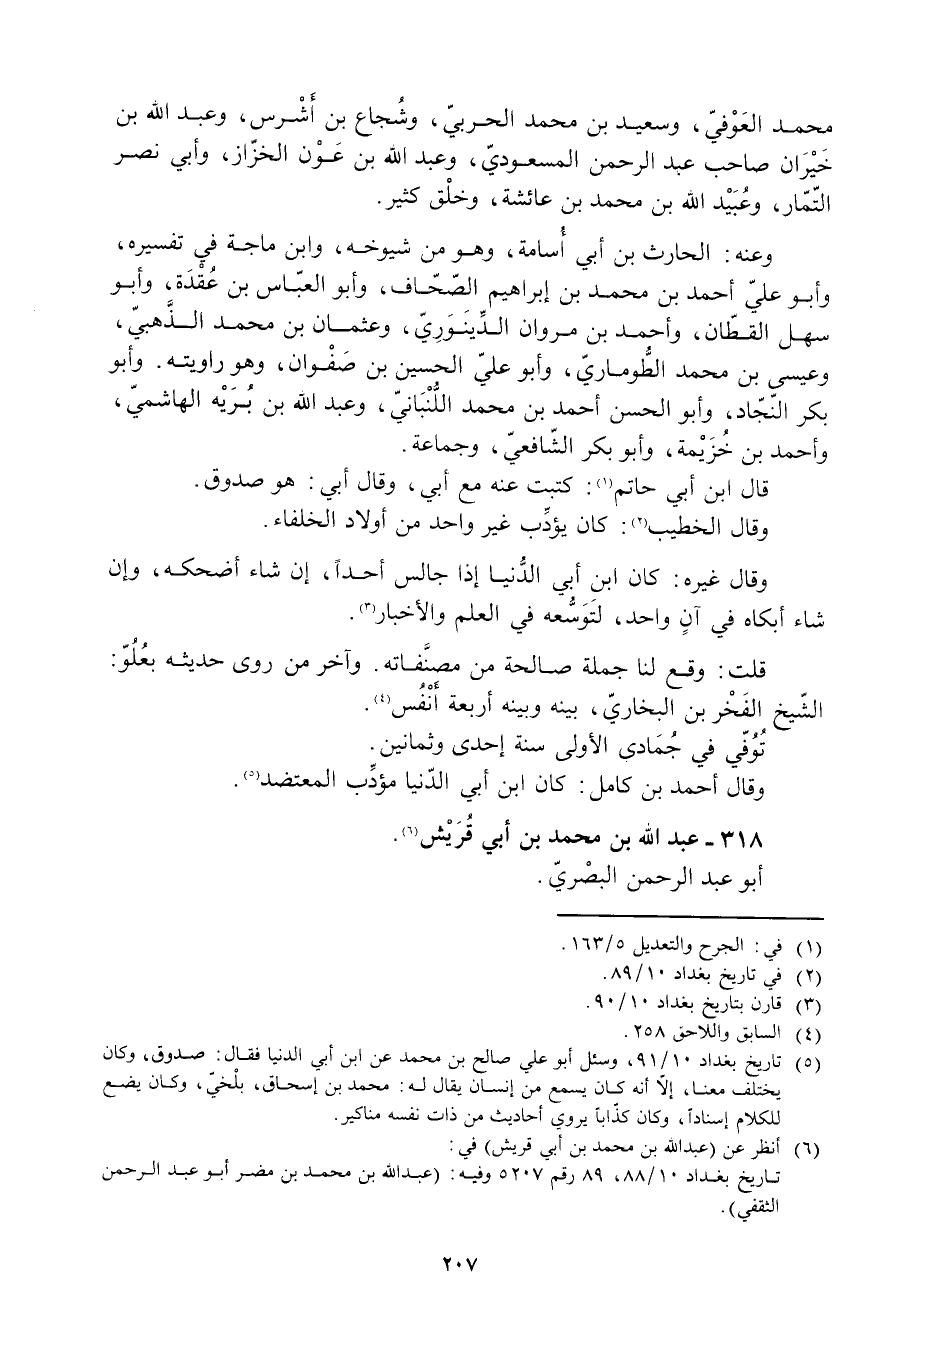 محمد العَوْفيّ، وسعيد بن محمد الحربيّ، وشُجاع بن أَشْرس، وعبد الله بن
خَيْرَان صاحب عبد الرحمن المسعوديّ، وعبد الله بن عَوْن الخزّاز، وأبي نصر
التّمّار، وعُبَيْد الله بن محمد بن عائشة، وخلْق كثير.
وعنه: الحارث بن أبي أُسامة، وهو من شيوخه، وابن ماجة في تفسيره،
وأبو عليّ أحمد بن محمد بن إبراهيم الصّحّاف، وأبو العبّاس بن عُقْدَة، وأبو
سهل القطّان، وأحمد بن مروان الدِّينَوَريّ، وعثمان بن محمد الذَّهبيّ،
وعيسى بن محمد الطُّوماريّ، وأبو عليّ الحسين بن صَفْوان، وهو راويته. وأبو
بكر النّجّاد، وأبو الحسن أحمد بن محمد اللُّنْبَانيّ، وعبد الله بن بُرَيْه الهاشميّ،
وأحمد بن خُزَيْمة، وأبو بكر الشّافعيّ، وجماعة.
قال ابن أبي حاتم(١): كتبت عنه مع أبي، وقال أبي: هو صدوق.
وقال الخطيب(٢): كان يؤدِّب غير واحد من أولاد الخلفاء.
وقال غيره: كان ابن أبي الدُّنيا إذا جالس أحداً، إن شاء أضحكه، وإن
شاء أبكاه في آنٍ واحد، لتَوَسُّعه في العلم والأخبار(٣).
قلت: وقع لنا جملة صالحة من مصنَّفاته. وآخر من روى حديثه بعُلُوّ:
الشّيخ الفَخْر بن البخاريّ، بينه وبينه أربعة أَنْفُس(٤).
تُوُفّي في جُمَادى الأولى سنة إحدى وثمانين.
وقال أحمد بن كامل: كان ابن أبي الدّنيا مؤدِّب المعتضد(٥).
٣١٨ - عبد الله بن محمد بن أبي قُرَيْش(٦).
أبو عبد الرحمن البصْريّ.
(١) في: الجرح والتعديل ١٦٣/٥.
(٢) في تاريخ بغداد ٨٩/١٠.
(٣) قارن بتاريخ بغداد ٩٠/١٠.
(٤) السابق واللاحق ٢٥٨.
(٥) تاريخ بغداد ٩١/١٠، وسئل أبو علي صالح بن محمد عن ابن أبي الدنيا فقال: صدوق، وكان
يختلف معنا، إلّا أنه كان يسمع من إنسان يقال له: محمد بن إسحاق، بلْخيّ، وكان يضع
للكلام إسناداً، وكان كذّاباً يروي أحاديث من ذات نفسه مناكير.
(٦) أنظر عن (عبدالله بن محمد بن أبي قريش) في:
تاريخ بغداد ٨٨/١٠، ٨٩ رقم ٥٢٠٧ وفيه: (عبدالله بن محمد بن مضر أبو عبد الرحمن
الثقفي).
٢٠٧